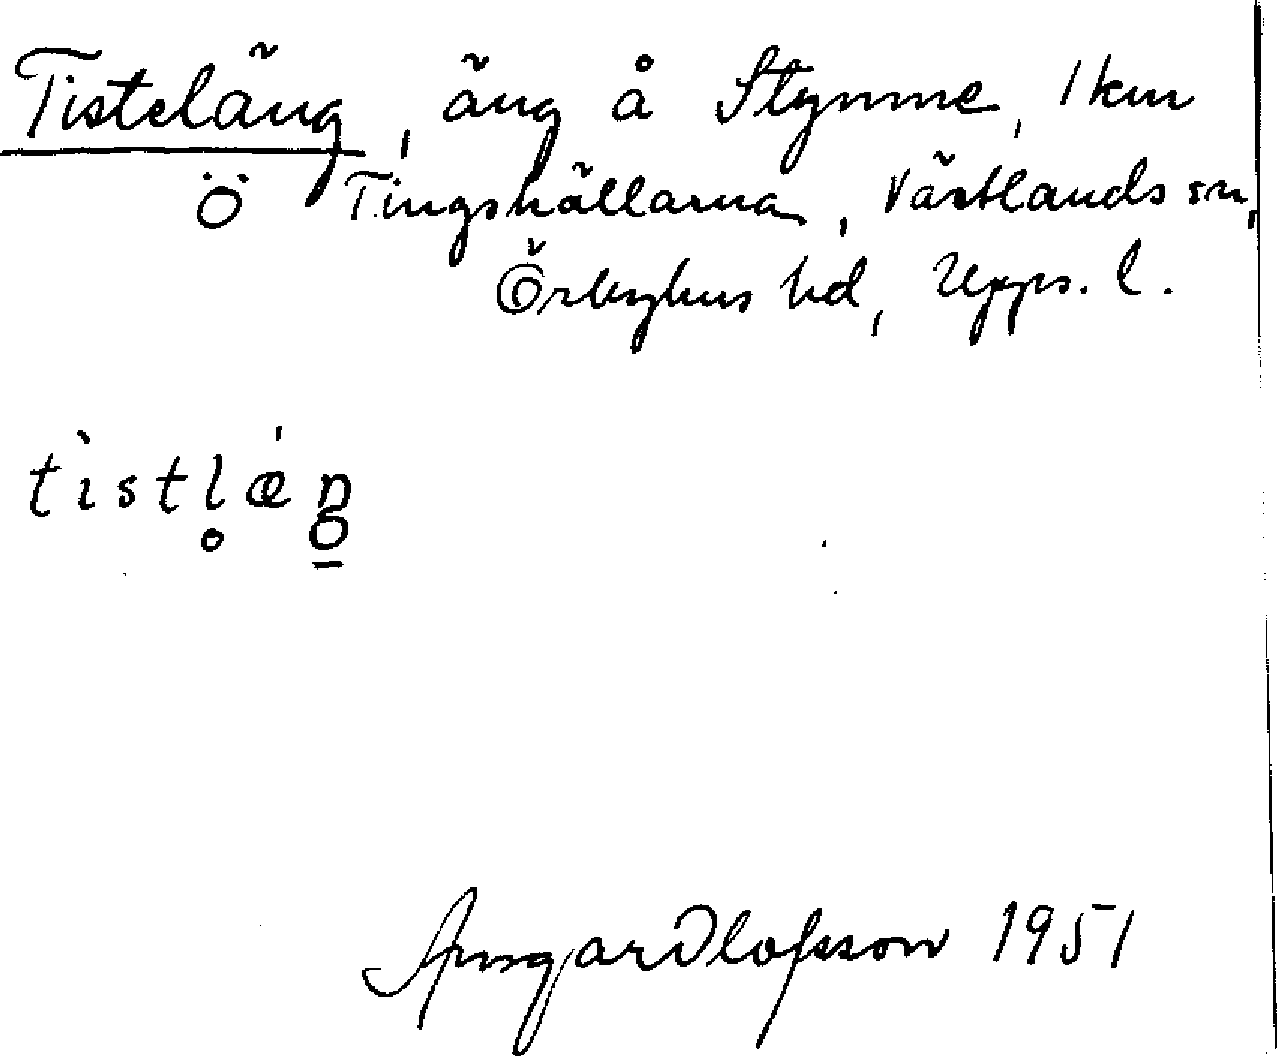 Tisteläng, äng å Stymme, 1 km
ö Tingshällarna, Västlands sn,
Örbyhus hd, Upps. l.
tìstl̥ǽŋ
Ansgar Olofsson 1951